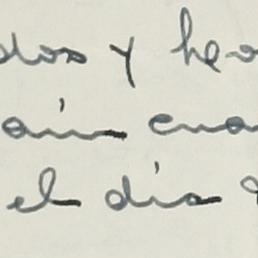 dos y he
aún cua
el día